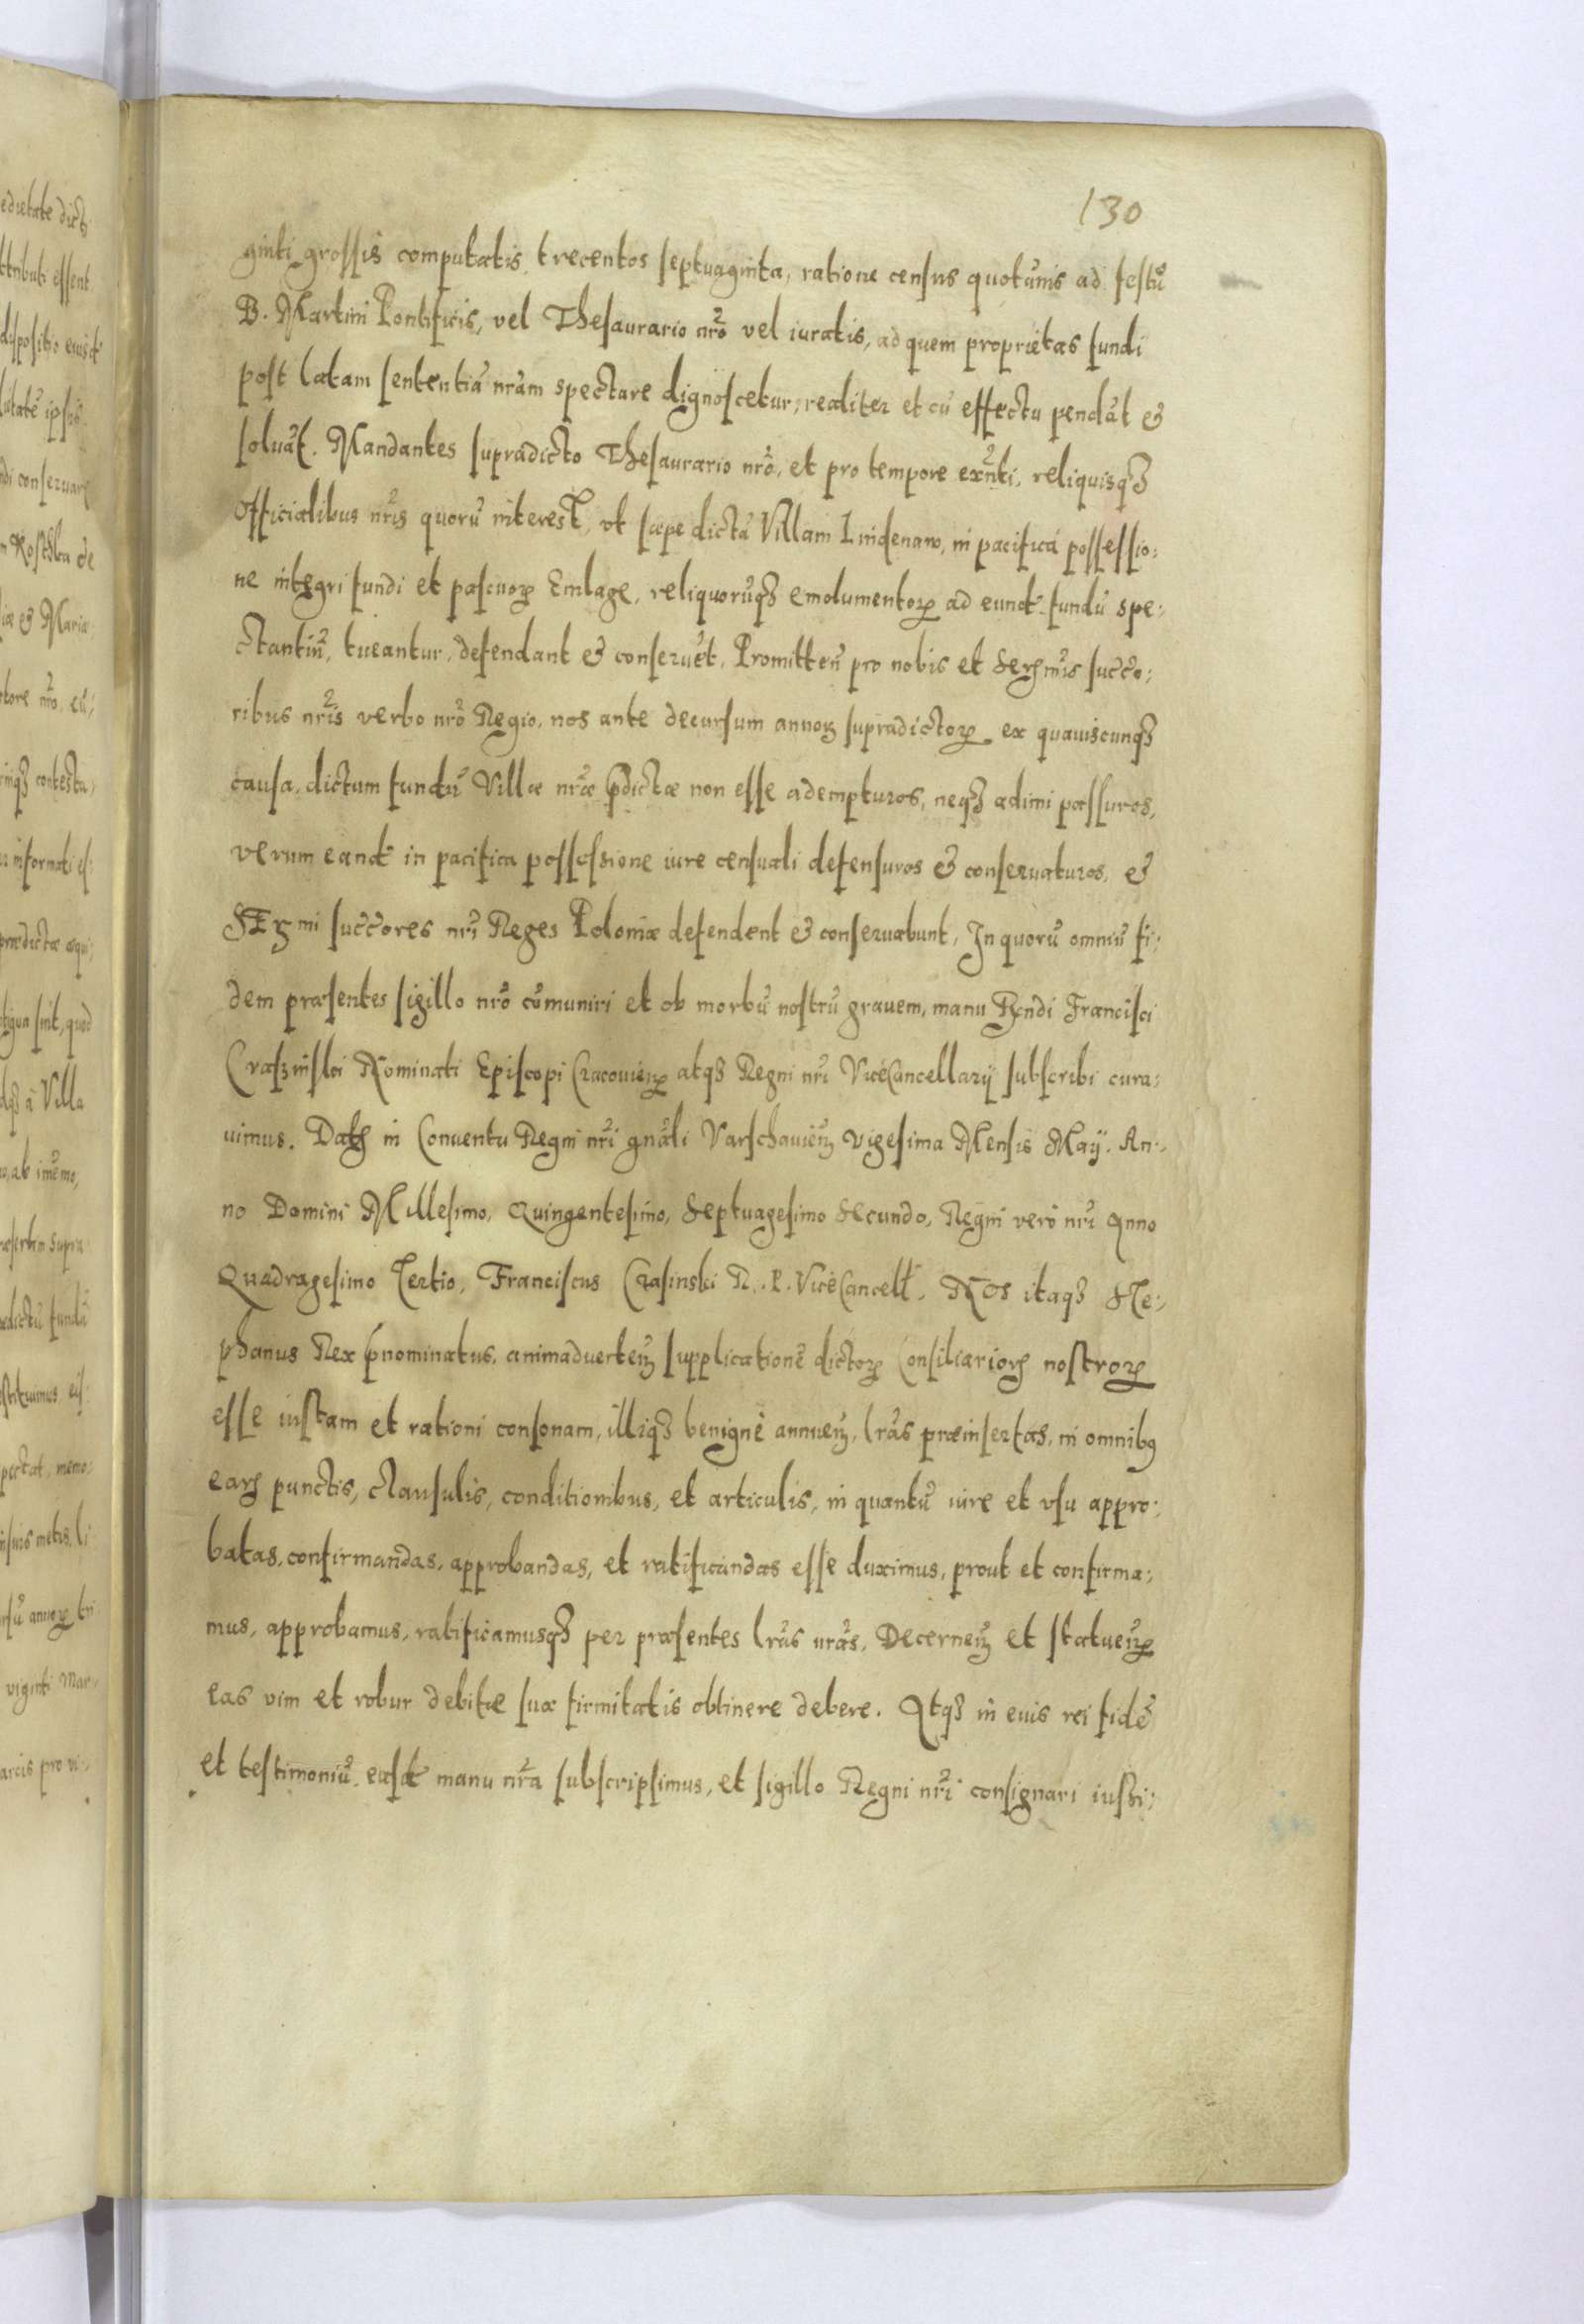 130
ginti grossis computatis, trecentos septuaginta, ratione census quotãnis ad festũ
B. Martini Pontificis, vel Thesaurario nrõ vel iuratis, ad quem proprietas fundi
post latam sententiã nrãm spectare dignoscetur, realiter et cũ effectu pendãt &
soluãt. Mandantes supradicto Thesaurario nrõ, et pro tempore exñti, reliquisqꝫ
Officialibus nrĩs quorũ interest, vt sæpe dictã Villam Lindenaw, in pacificá possessio:
ne integri fundi et pascuoꝝ Emlage, reliquorũqꝫ emolumentoꝝ ad eund fundũ spe:
ctantiũ, tueantur, defendant & conseruẽt, Promitteñ pro nobis et Serꝫmis succo:
ribus nrĩs verbo nrõ Regio, nos ante decursum annoꝝ supradictoꝝ ex quauiscunqꝫ
causa, dictum fundũ Villæ nrãe p̃dictæ non esse adempturos, neqꝫ adimi passuros,
verum eand in pacifica possessione iure censuali defensuros & conseruaturos, &
SErꝫmi succores nrĩ Reges Poloniæ defendent & conseruabunt, In quorũ omniũ fi:
dem præsentes sigillo nrõ cõmuniri et ob morbũ nostrũ grauem, manu Rṇdi Francisci
Craszinski Nominati Episcopi Cracouieñ atqꝫ Regni nrĩ ViceCancellarij subscribi cura:
uimus. Datꝫ in Conuentu Regni nrĩ gnãli Varschauieñ vigesima Mensis Maij. An:
no Domini Millesimo, Quingentesimo, Septuagesimo Secundo, Regni verò nrĩ Anno
Quadragesimo Tertio, Franciscus Crasinski R. P. ViceCancell. NOS itaqꝫ Ste:
phanus Rex p̃nominatus, animaduerteñ supplicationẽ dictoꝝ Consiliarioꝝ nostroꝝ
esse iustam et rationi consonam, illiqꝫ benignè annueñ, lrãs præinsertas, in omnibꝰ
earꝝ punctis, clausulis, conditionibus, et articulis, in quantũ iure et vsu appro:
batas, confirmandas, approbandas, et ratificandas esse duximus, prout et confirma:
mus, approbamus, ratificamusqꝫ per præsentes lrãs nrãs, Decerneñ et statueñ
eas vim et robur debitæ suæ firmitatis obtinere debere. Atqꝫ in euis rei fidẽ
et testimoniũ easd manu nrã subscripsimus, et sigillo Regni nrĩ consignari iussi: